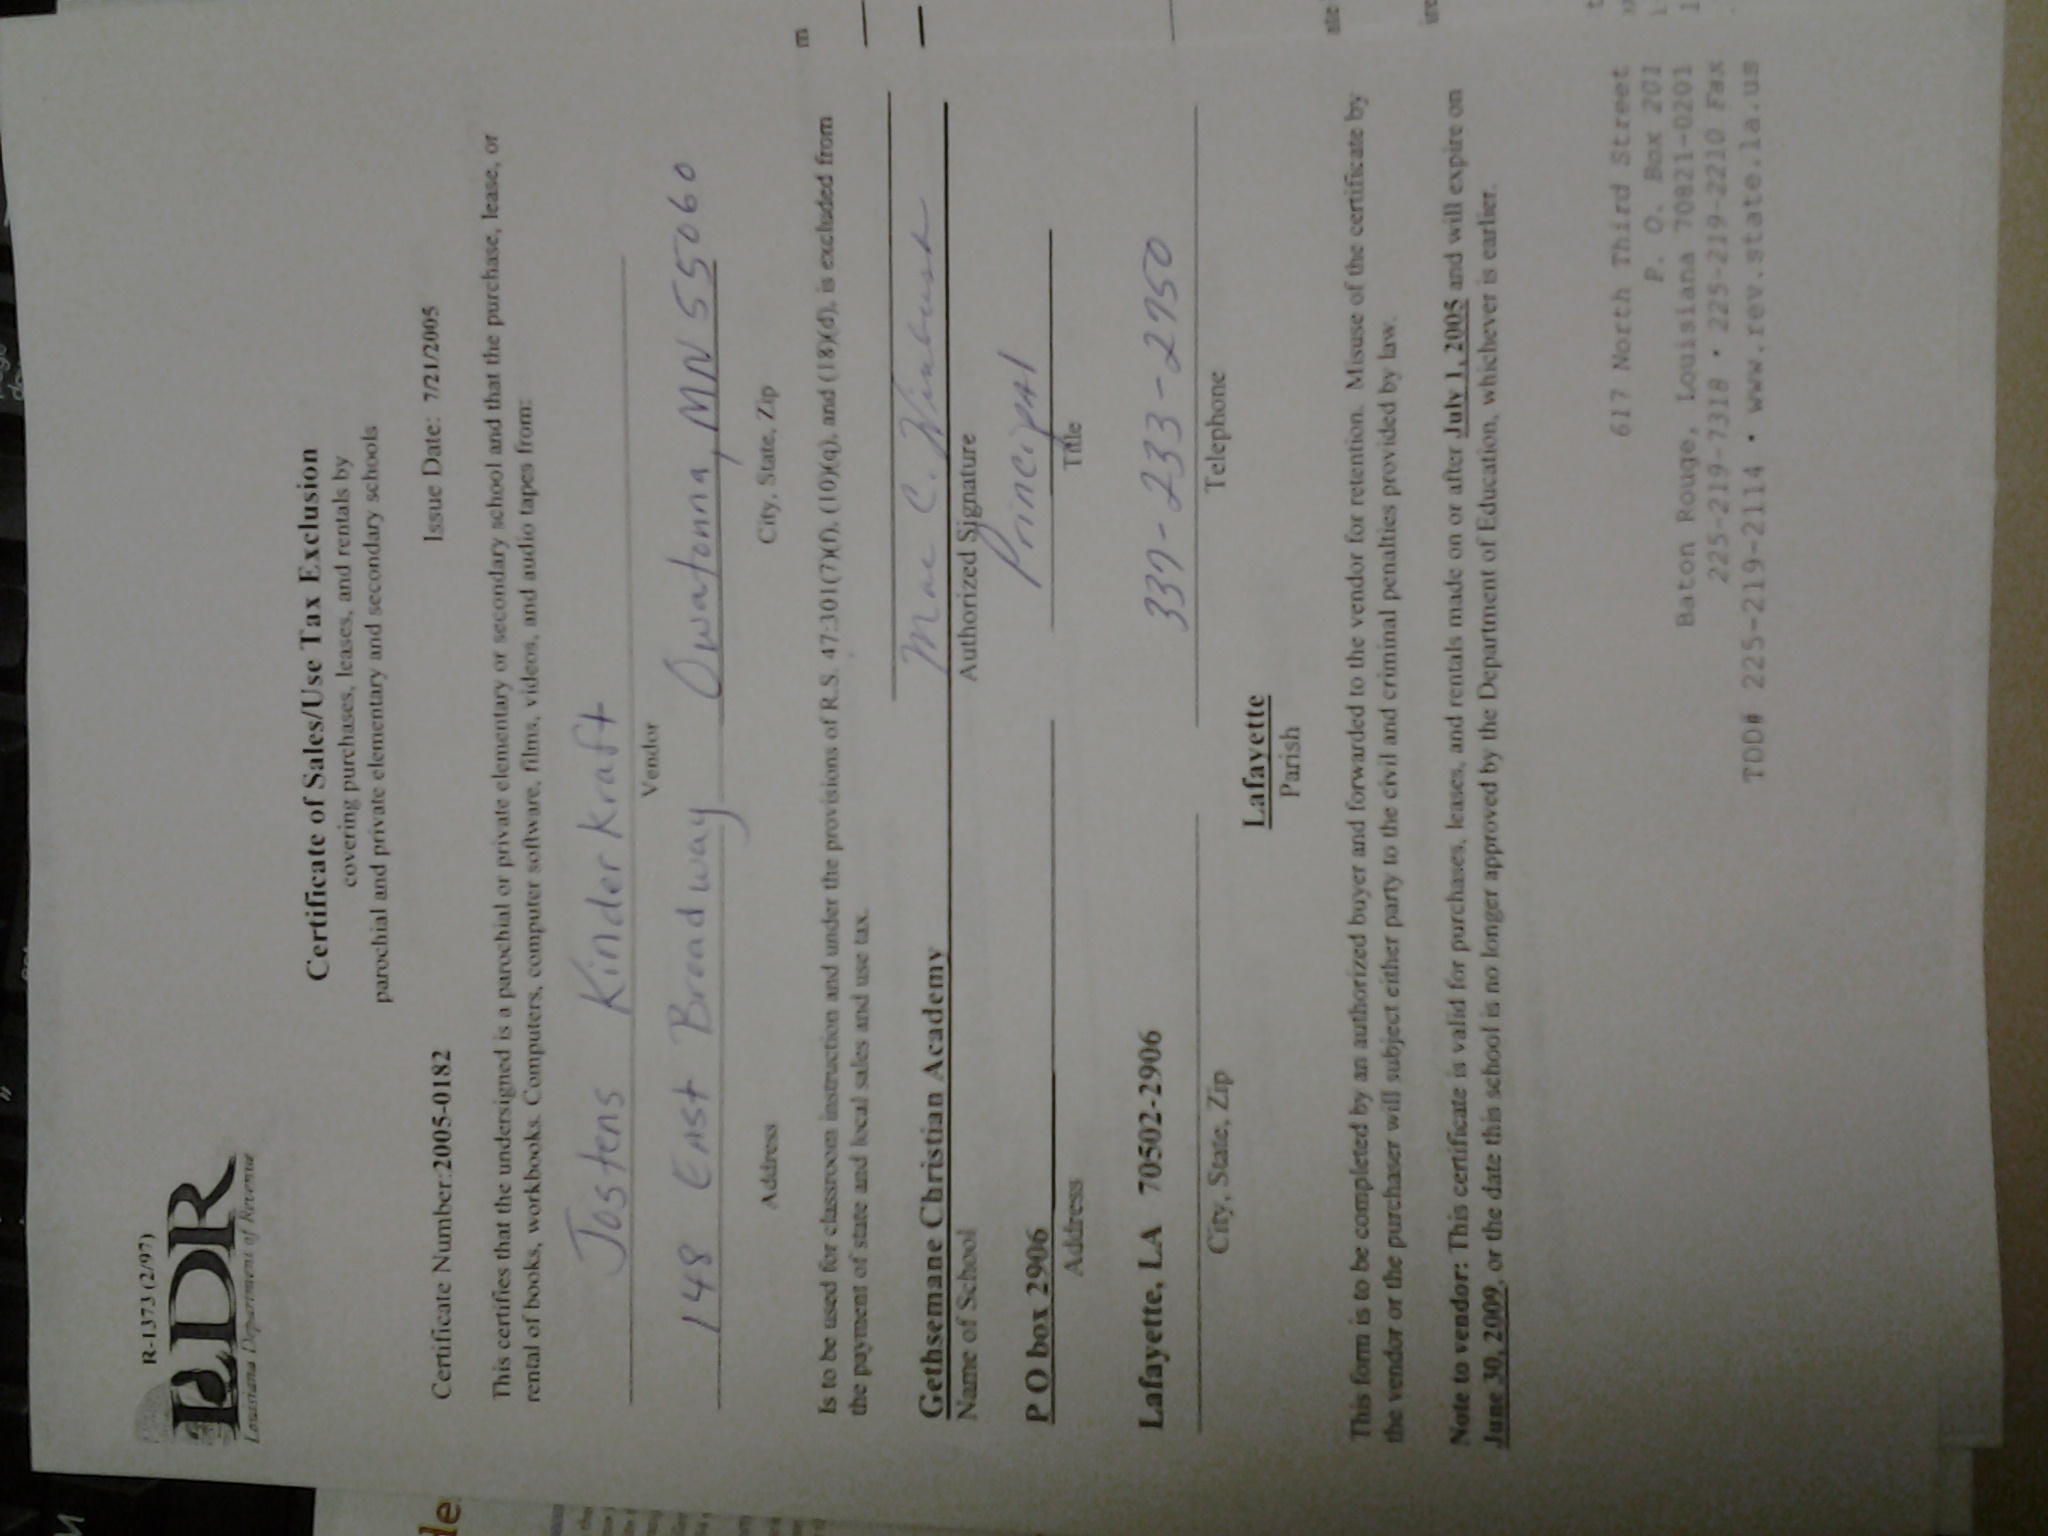 R-1373 (2/97)
LDR
Louisiana Department of Revenue
Certificate of Sales/Use Tax Exclusion
covering purchases, leases, and rentals by
parochial and private elementary and secondary schools
Certificate Number:2005-0182 Issue Date: 7/21/2005
This certifies that the undersigned is a parochial or private elementary or secondary school and that the purchase, lease, or
rental of books, workbooks. Computers, computer software, films, videos, and audio tapes from:
Jostens Kinderkraft
Vendor
148 East Broadway Owatonna, MN 55060
Address City, State, Zip
Is to be used for classroom instruction and under the provisions of R.S. 47:301(7)(f), (10)(q), and (18)(d), is excluded from
the payment of state and local sales and use tax.
Gethsemane Christian Academy Mae C. Winbush
Name of School Authorized Signature
P O box 2906 Principal
Address Title
Lafayette, LA 70502-2906 337-233-2750
City, State, Zip Telephone
Lafayette
Parish
This form is to be completed by an authorized buyer and forwarded to the vendor for retention. Misuse of the certificate by
the vendor or the purchaser will subject either party to the civil and criminal penalties provided by law.
Note to vendor: This certificate is valid for purchases, leases, and rentals made on or after July 1, 2005 and will expire on
June 30, 2009, or the date this school is no longer approved by the Department of Education, whichever is earlier.
617 North Third Street
P. O. Box 201
Baton Rouge, Louisiana 70821-0201
225-219-7318 • 225-219-2210 Fax
TDD# 225-219-2114 • www.rev.state.la.us